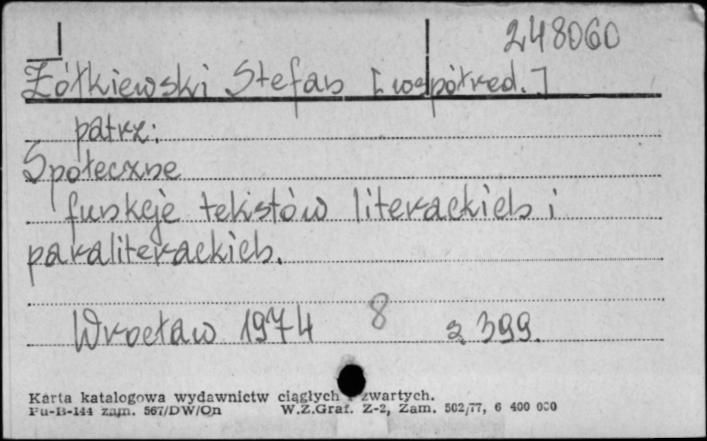 248060
Żółkiewski Stefan [współred.]
patrz:
Społeczne
funkcje tekstów literackich i
paraliterackich.
Wrocław 1974 8 s 399.
Karta katalogowa wydawnictw ciągłych i zwartych.
Pu-B-144 zam. 567/DW/On W.Z.Graf. Z-2, Zam. 502/77, 6 400 000